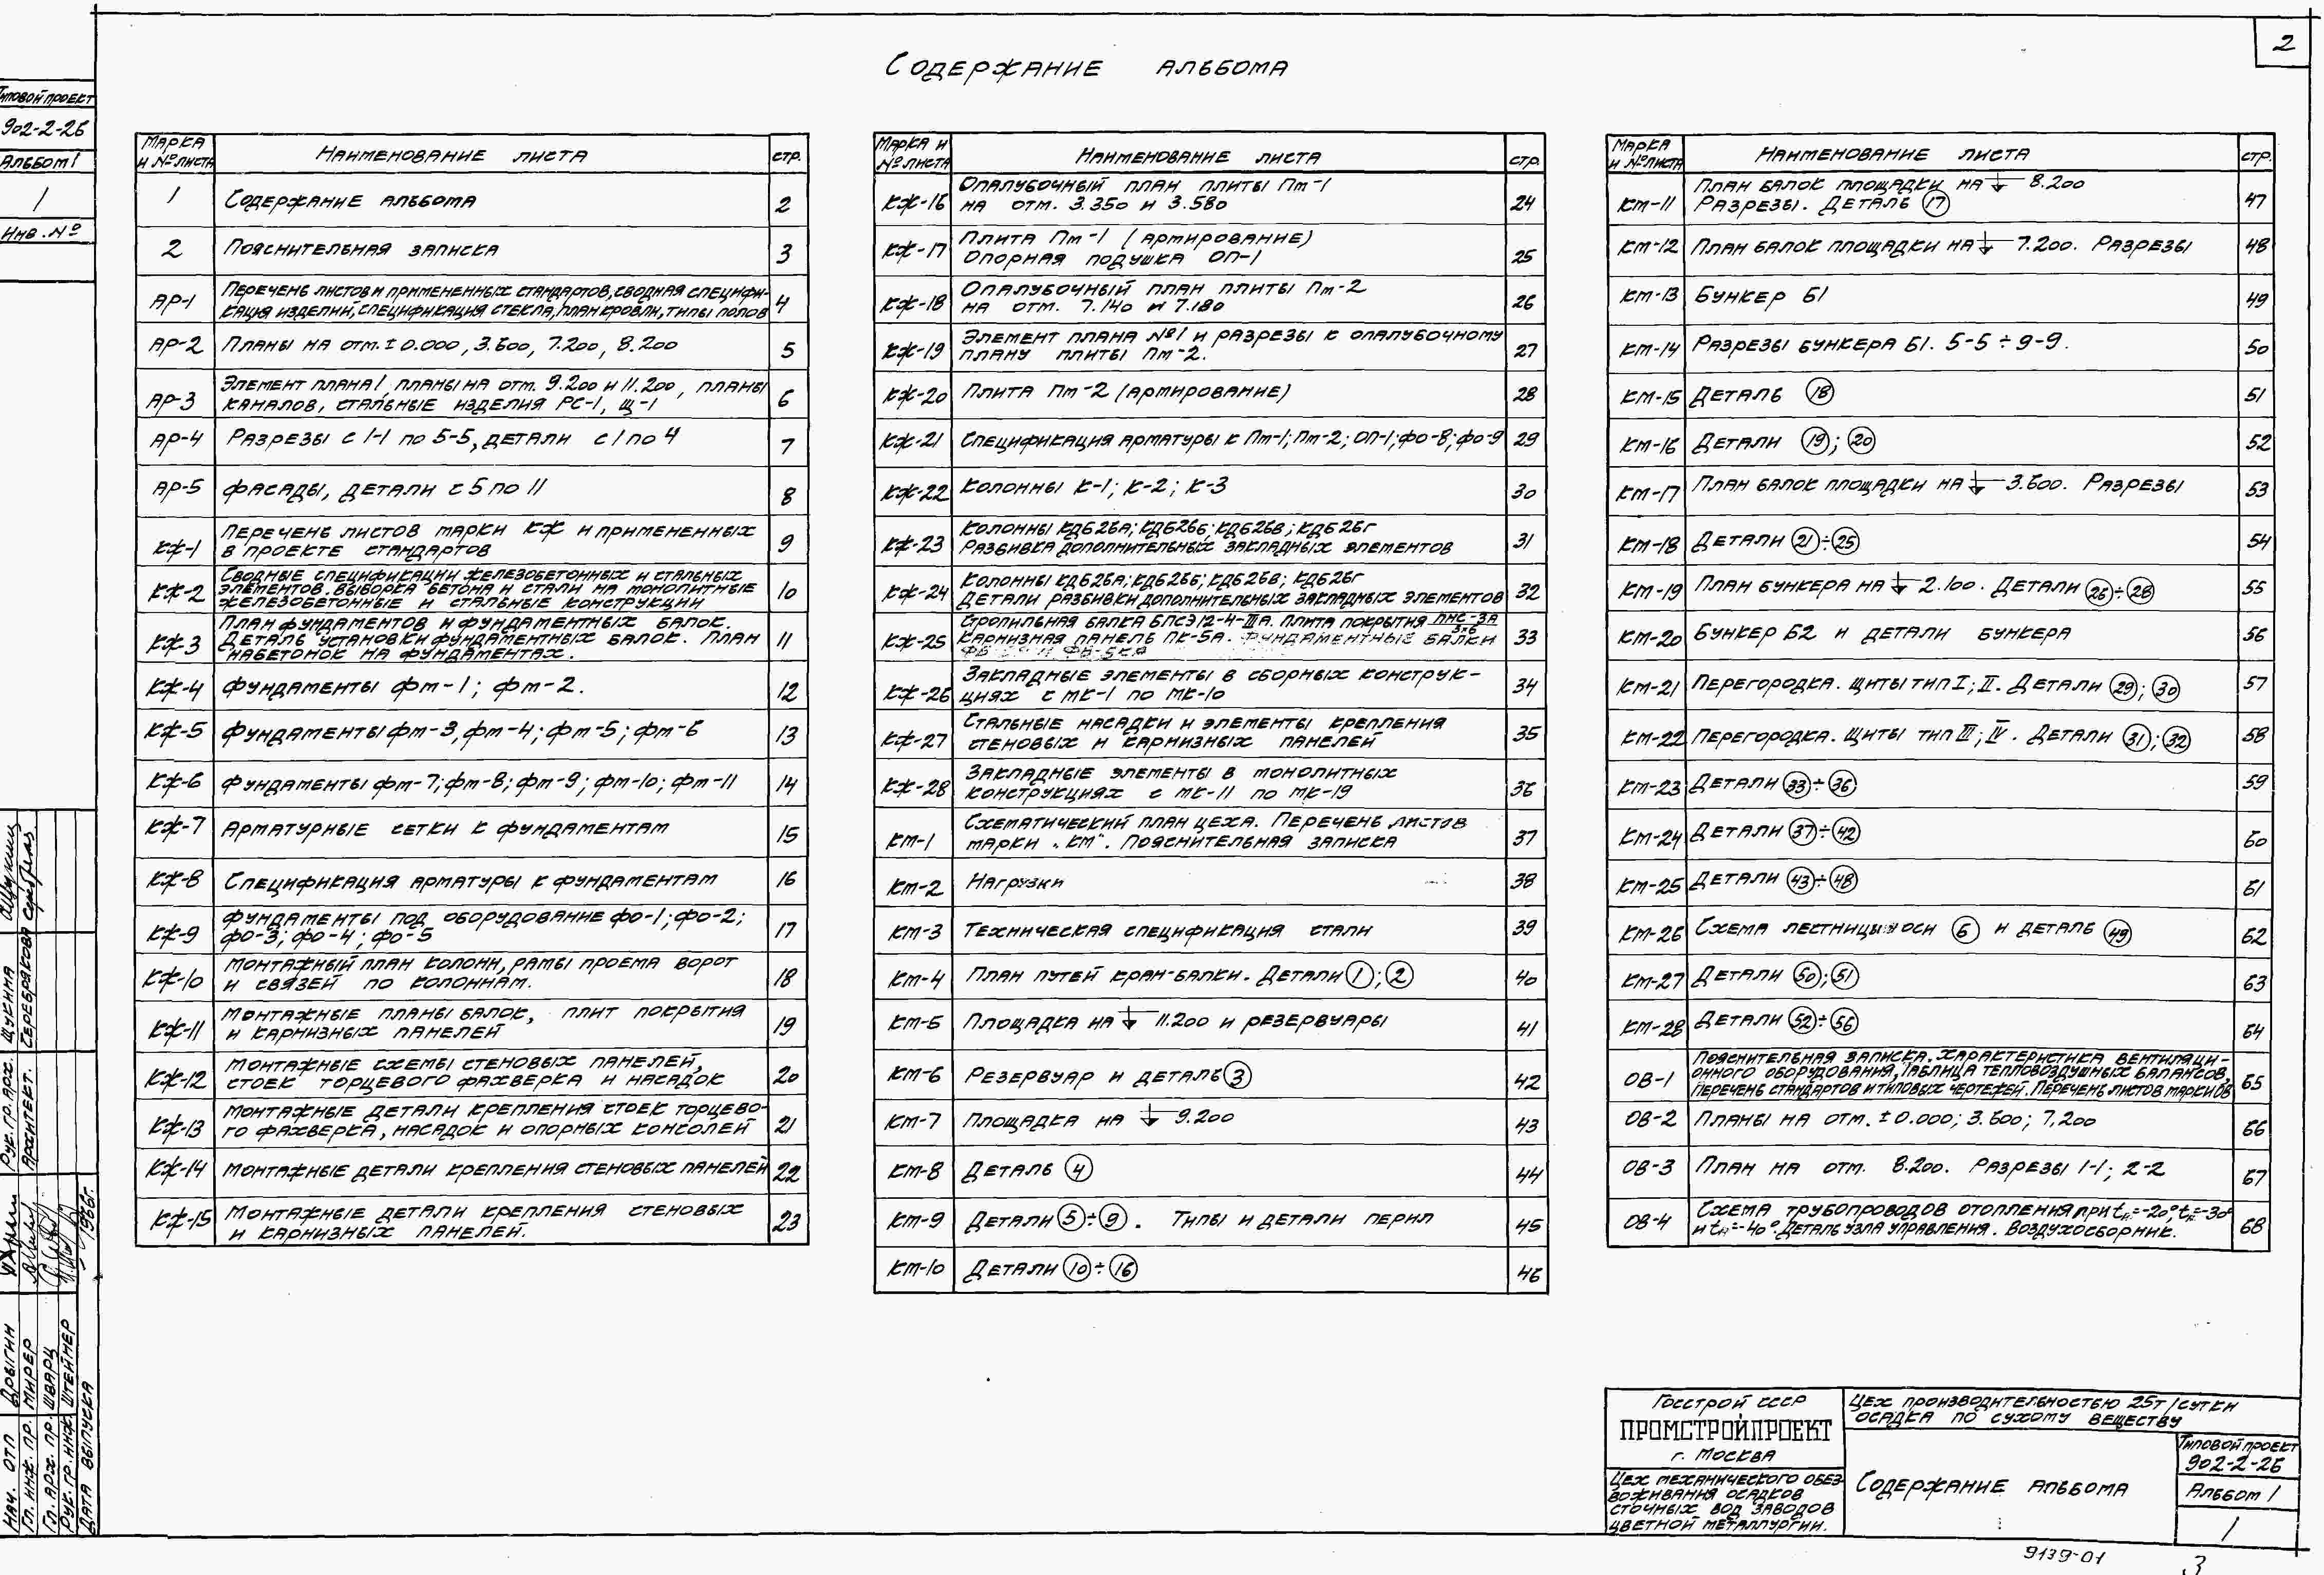 2
Содержание альбома
Типовой проект
902-2-26
Альбом I
1
Инв. №
Марка и № листа
Наименование листа
стр.
1 Содержание альбома 2
2 Пояснительная записка 3
АР-1 Перечень листов и примененных стандартов, сводная специфи-
кация изделий, спецификация стекла, план кровли, типы полов 4
АР-2 Планы на отм. ±0.000, 3.600, 7.200, 8.200 5
АР-3 Элемент плана 1, планы на отм. 9.200 и 11.200, планы
каналов, стальные изделия РС-1, Щ-1 6
АР-4 Разрезы с 1-1 по 5-5, детали с 1 по 4 7
АР-5 Фасады, детали с 5 по 11 8
КЖ-1 Перечень листов марки КЖ и примененных
в проекте стандартов 9
КЖ-2 Сводные спецификации железобетонных и стальных
элементов. Выборка бетона и стали на монолитные
железобетонные и стальные конструкции 10
КЖ-3 План фундаментов и фундаментных балок.
Деталь установки фундаментных балок. План
набетонок на фундаментах. 11
КЖ-4 Фундаменты Фм-1; Фм-2. 12
КЖ-5 Фундаменты Фм-3, Фм-4; Фм-5; Фм-6 13
КЖ-6 Фундаменты Фм-7; Фм-8; Фм-9; Фм-10; Фм-11 14
КЖ-7 Арматурные сетки к фундаментам 15
КЖ-8 Спецификация арматуры к фундаментам 16
КЖ-9 Фундаменты под оборудование Фо-1; Фо-2;
Фо-3; Фо-4; Фо-5 17
КЖ-10 Монтажный план колонн, рамы проема ворот
и связей по колоннам. 18
КЖ-11 Монтажные планы балок, плит покрытия
и карнизных панелей 19
КЖ-12 Монтажные схемы стеновых панелей,
стоек торцевого фахверка и насадок 20
КЖ-13 Монтажные детали крепления стоек торцево-
го фахверка, насадок и опорных консолей 21
КЖ-14 Монтажные детали крепления стеновых панелей 22
КЖ-15 Монтажные детали крепления стеновых
и карнизных панелей. 23
Марка и № листа
Наименование листа
стр.
КЖ-16 Опалубочный план плиты Пм-1
на отм. 3.350 и 3.580 24
КЖ-17 Плита Пм-1 (армирование)
опорная подушка ОП-1 25
КЖ-18 Опалубочный план плиты Пм-2
на отм. 7.140 и 7.180 26
КЖ-19 Элемент плана №1 и разрезы к опалубочному
плану плиты Пм-2. 27
КЖ-20 Плита Пм-2 (армирование) 28
КЖ-21 Спецификация арматуры к Пм-1; Пм-2; ОП-1; Фо-8; Фо-9 29
КЖ-22 Колонны К-1; К-2; К-3 30
КЖ-23 Колонны КДБ26А; КДБ26Б; КДБ26В; КДБ26Г
Разбивка дополнительных закладных элементов 31
КЖ-24 Колонны КДБ26А; КДБ26Б; КДБ26В; КДБ26Г
Детали разбивки дополнительных закладных элементов 32
КЖ-25 Стропильная балка БПСЭ12-4-IIIА. Плита покрытия ПНС-3А/3х6
Карнизная панель ПК-5А. Фундаментные балки 33
КЖ-26 Закладные элементы в сборных конструк-
циях с МК-1 по МК-10 34
КЖ-27 Стальные насадки и элементы крепления
стеновых и карнизных панелей 35
КЖ-28 Закладные элементы в монолитных
конструкциях с МК-11 по МК-19 36
КМ-1 Схематический план цеха. Перечень листов
марки „КМ". Пояснительная записка 37
КМ-2 Нагрузки 38
КМ-3 Техническая спецификация стали 39
КМ-4 План путей кран-балки. Детали 1; 2 40
КМ-5 Площадка на 11.200 и резервуары 41
КМ-6 Резервуар и деталь 3 42
КМ-7 Площадка на 9.200 43
КМ-8 Деталь 4 44
КМ-9 Детали 5÷9. Типы и детали перил 45
КМ-10 Детали 10÷16 46
Марка и № листа
Наименование листа
стр.
КМ-11 План балок площадки на 8.200
Разрезы. Деталь 17 47
КМ-12 План балок площадки на 7.200. Разрезы 48
КМ-13 Бункер Б1 49
КМ-14 Разрезы бункера Б1. 5-5÷9-9. 50
КМ-15 Деталь 18 51
КМ-16 Детали 19; 20 52
КМ-17 План балок площадки на 3.600. Разрезы 53
КМ-18 Детали 21÷25 54
КМ-19 План бункера на 2.100. Детали 26÷28 55
КМ-20 Бункер Б2 и детали бункера 56
КМ-21 Перегородка. Щиты тип I; II. Детали 29; 30 57
КМ-22 Перегородка. Щиты тип III; IV. Детали 31; 32 58
КМ-23 Детали 33÷36 59
КМ-24 Детали 37÷42 60
КМ-25 Детали 43÷48 61
КМ-26 Схема лестницы оси 6 и деталь 49 62
КМ-27 Детали 50; 51 63
КМ-28 Детали 52÷56 64
ОВ-1 Пояснительная записка. Характеристика вентиляци-
онного оборудования, таблица тепловоздушных балансов,
перечень стандартов и типовых чертежей. Перечень листов марки ОВ 65
ОВ-2 Планы на отм. ±0.000; 3.600; 7.200 66
ОВ-3 План на отм. 8.200. Разрезы 1-1; 2-2 67
ОВ-4 Схема трубопроводов отопления при tн=-20°, tн=-30°
и tн=-40°. Деталь узла управления. Воздухосборник. 68
Рук. гр. арх. Щукина
Архитект. Серебрякова
Нач. отп Дрыгин
Гл. инж. пр. Мирер
Гл. арх. пр. Шварц
Рук. гр. инж. Штейнер
Дата выпуска 1966г.
Госстрой СССР
ПРОМСТРОЙПРОЕКТ
г. Москва
Цех механического обез-
воживания осадков
сточных вод заводов
цветной металлургии.
Цех производительностью 25т/сутки
осадка по сухому веществу
Содержание альбома
Типовой проект
902-2-26
Альбом I
1
9139-01
3